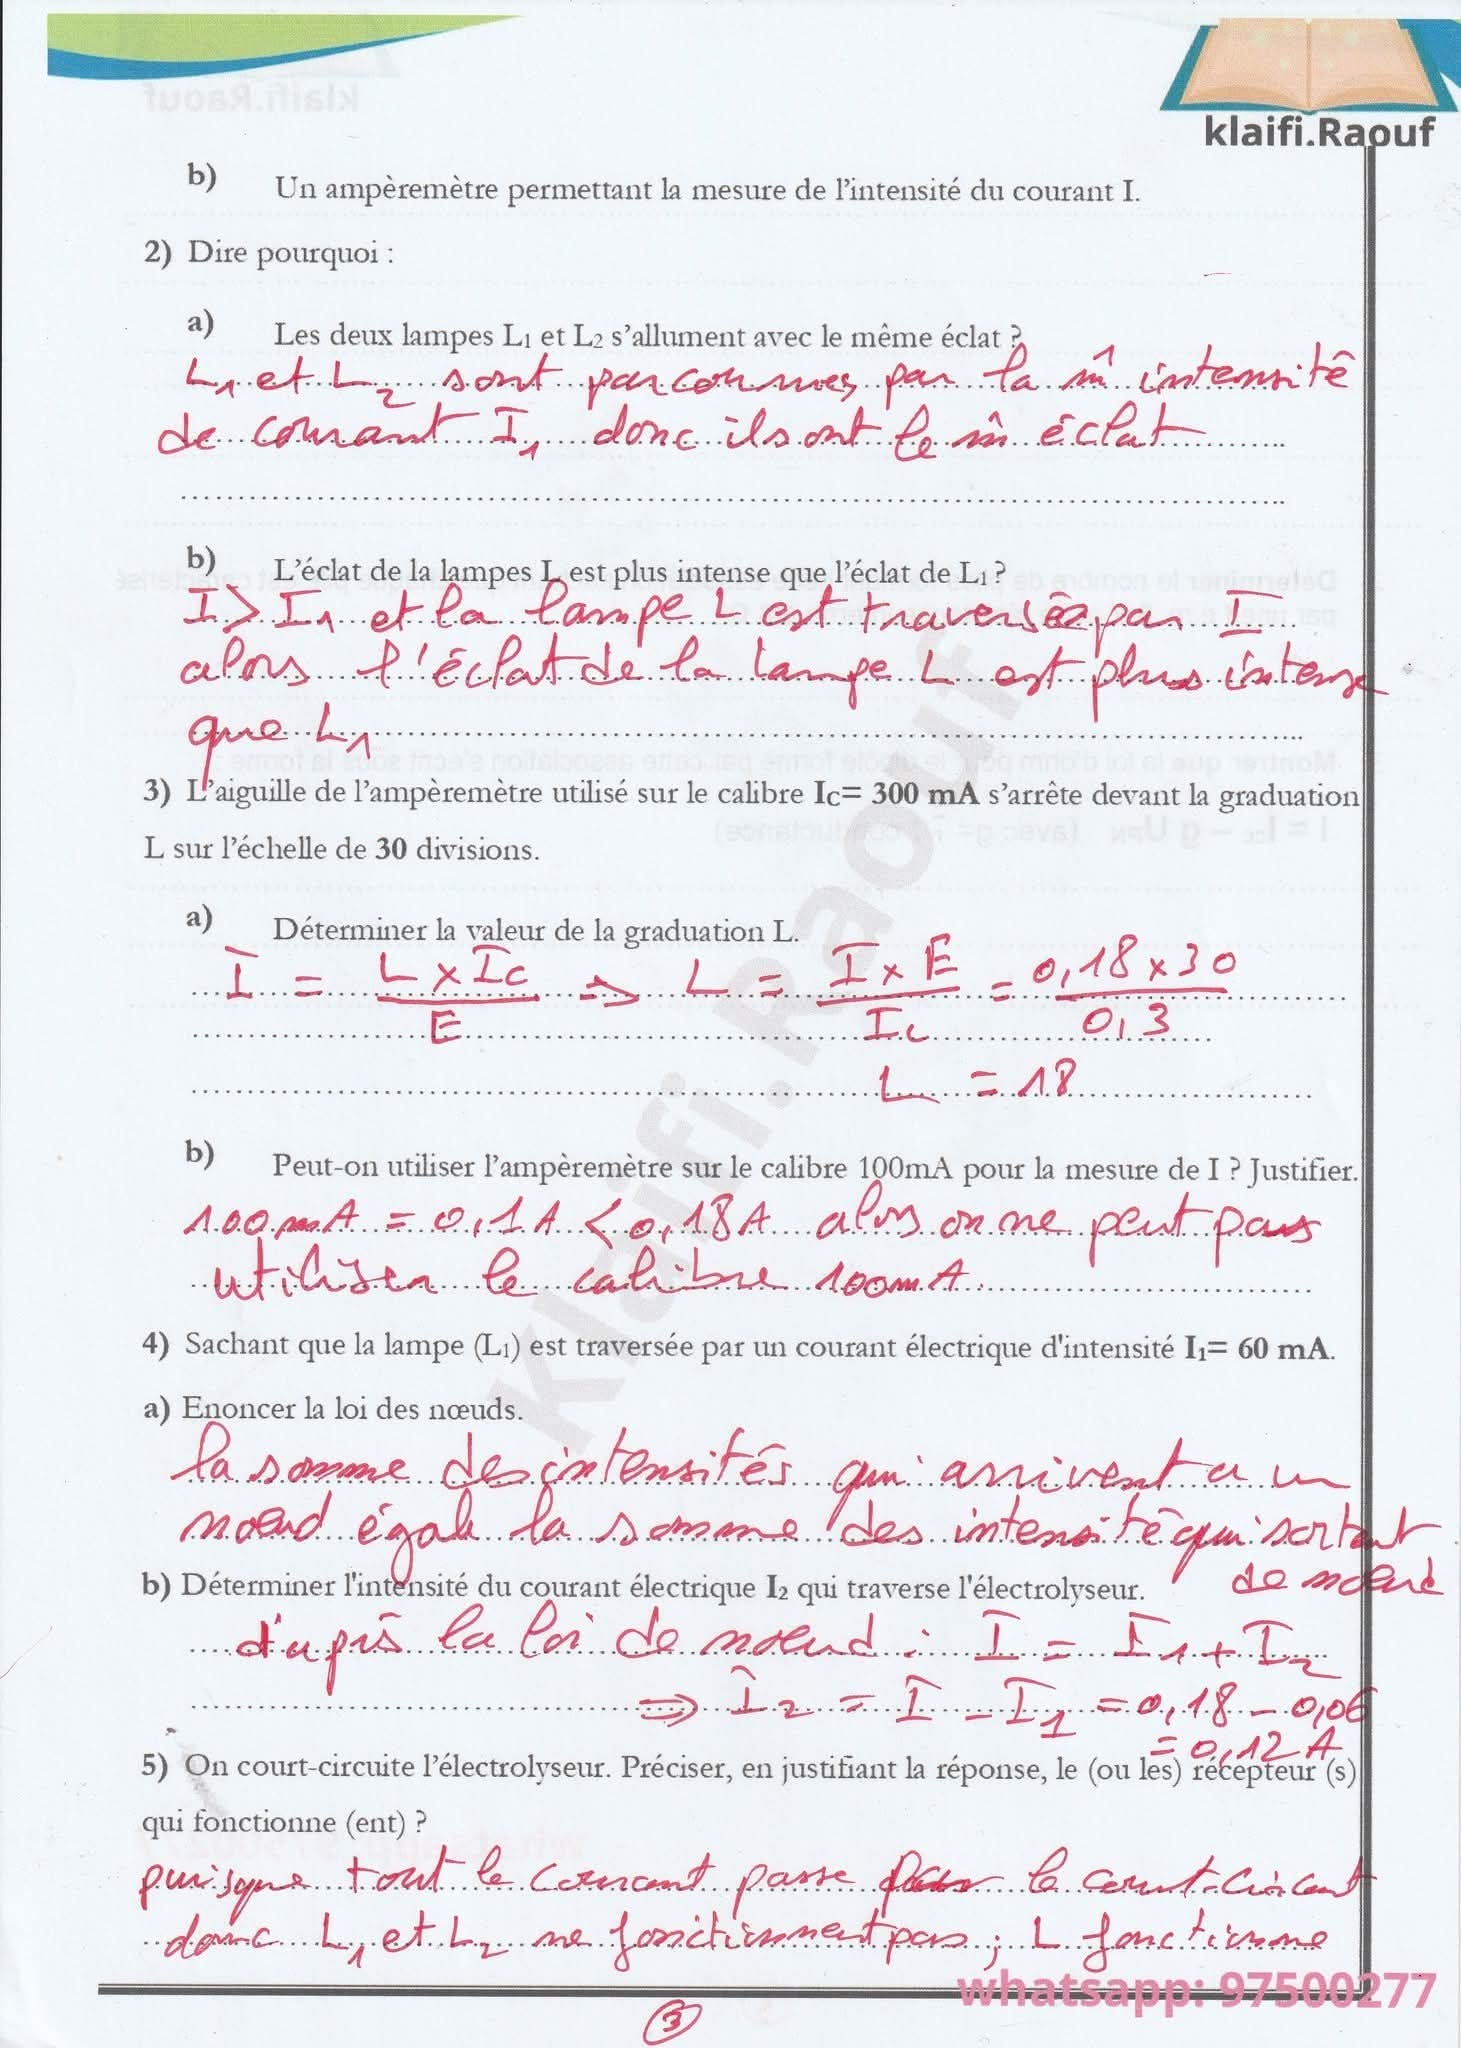 klaifi.Raouf
b) Un ampèremètre permettant la mesure de l'intensité du courant I.
2) Dire pourquoi :
a) Les deux lampes L1 et L2 s'allument avec le même éclat ?
L1 et L2 sont parcourues par la m̂ intensité
de courant I1 donc ils ont le m̂ éclat
b) L'éclat de la lampes L est plus intense que l'éclat de L1 ?
I > I1 et la lampe L est traversée par I
alors l'éclat de la lampe L est plus intense
que L1
3) L'aiguille de l'ampèremètre utilisé sur le calibre IC= 300 mA s'arrête devant la graduation
L sur l'échelle de 30 divisions.
a) Déterminer la valeur de la graduation L.
I = L x Ic / E => L = I x E / Ic = 0,18 x 30 / 0,3
L = 18
b) Peut-on utiliser l'ampèremètre sur le calibre 100mA pour la mesure de I ? Justifier.
100mA = 0,1A < 0,18A alors on ne peut pas
utiliser le calibre 100mA.
4) Sachant que la lampe (L1) est traversée par un courant électrique d'intensité I1= 60 mA.
a) Enoncer la loi des nœuds.
la somme des intensités qui arrivent a un
nœud égale la somme des intensité qui sortent
de nœud
b) Déterminer l'intensité du courant électrique I2 qui traverse l'électrolyseur.
d'après la loi de nœud : I = I1 + I2
=> I2 = I - I1 = 0,18 - 0,06
= 0,12 A
5) On court-circuite l'électrolyseur. Préciser, en justifiant la réponse, le (ou les) récepteur (s)
qui fonctionne (ent) ?
puisque tout le courant passe par le court-circuit
donc L1 et L2 ne fonctionnent pas ; L fonctionne
whatsapp: 97500277
3
Klaifi.Raouf